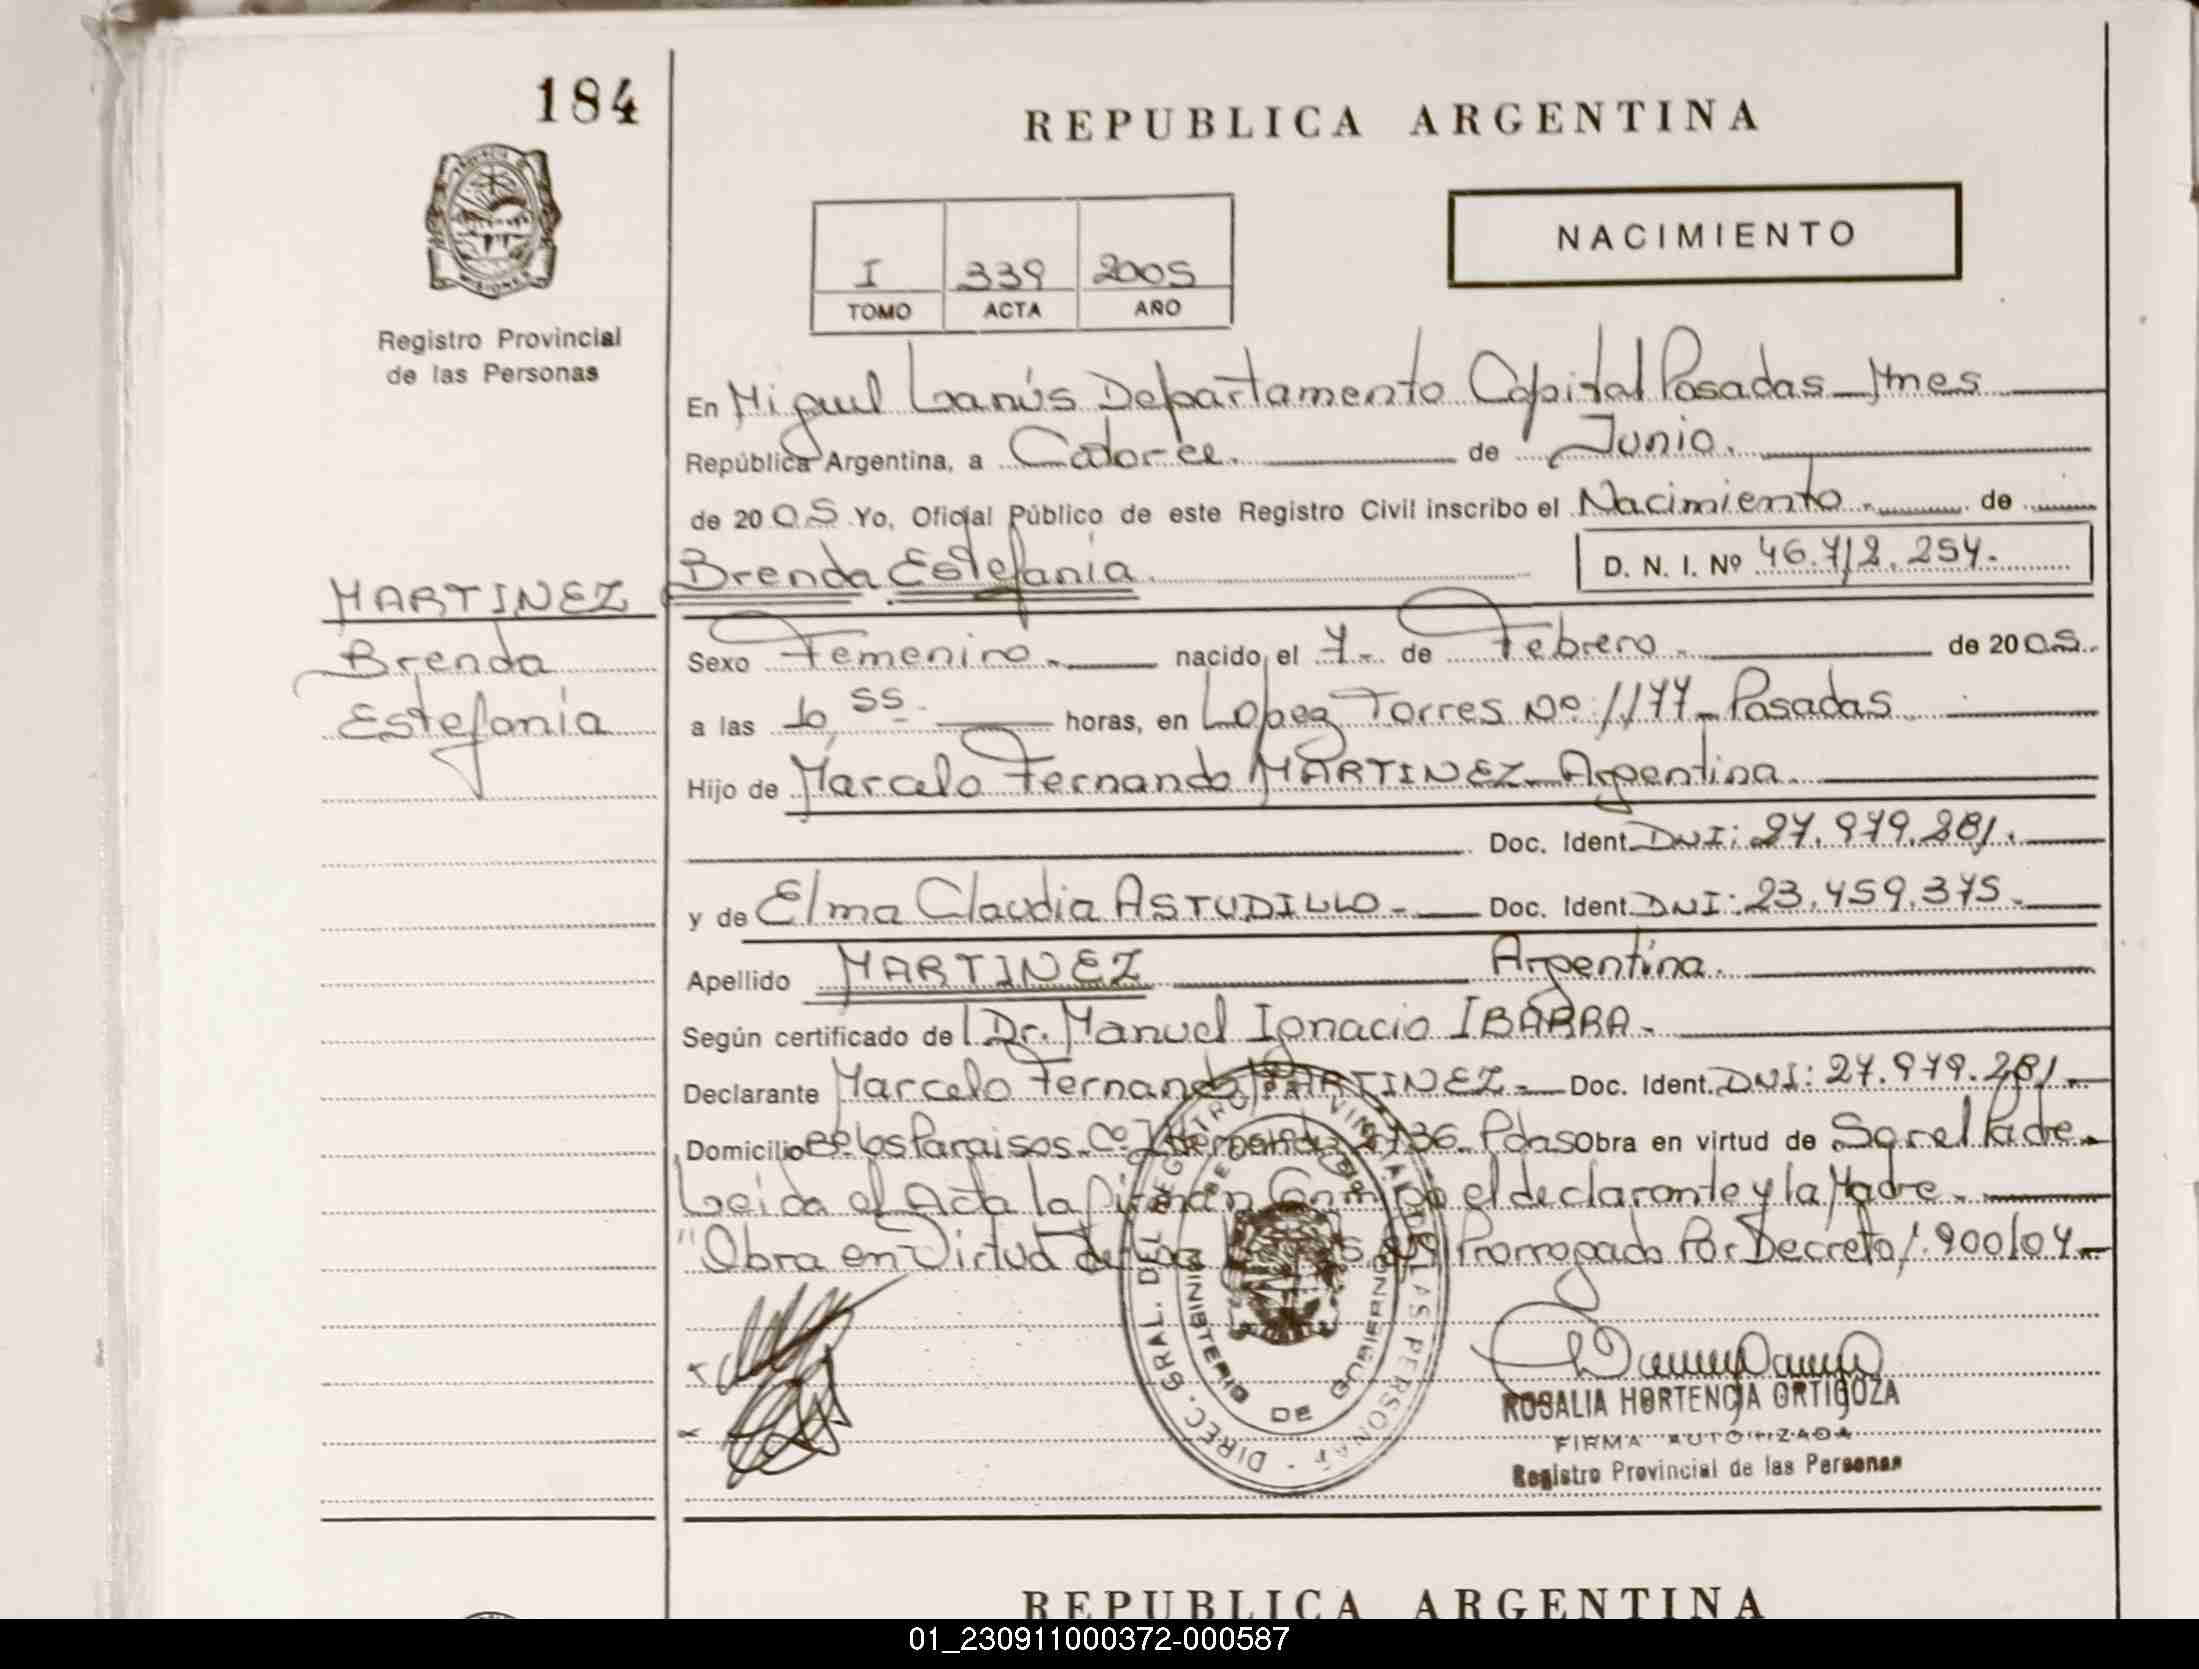 184
REPUBLICA ARGENTINA
I 339 2005
TOMO ACTA AÑO
NACIMIENTO
Registro Provincial
de las Personas
En Miguel Lanús Departamento Capital Posadas Mnes
República Argentina, a Catorce. de Junio.
de 2005 Yo, Oficial Público de este Registro Civil inscribo el Nacimiento. de
Brenda Estefanía.
D. N. I. Nº 46.712.254.
MARTINEZ
Brenda
Estefanía
Sexo Femenino. nacido el 7 de Febrero. de 2005.
a las 10,55 horas, en López Torres Nº 1177 Posadas
Hijo de Marcelo Fernando MARTINEZ Argentina.
Doc. Ident. DNI: 27.979.281.
y de Elma Claudia ASTUDILLO Doc. Ident. DNI: 23.459.375.
Apellido MARTINEZ Argentina.
Según certificado de Dr. Manuel Ignacio IBARRA
Declarante Marcelo Fernando MARTINEZ Doc. Ident. DNI: 27.979.281.
Domicilio Bº Los Paraisos 2736 Pdas Obra en virtud de Ser el Padre
Leída el Acta la firman Conmigo el declarante y la Madre.
"Obra en Virtud Prorrogado Por Decreto 1.900/04
DIREC. GRAL. DEL REGISTRO PROVINCIAL DE LAS PERSONAS
MINISTERIO DE GOBIERNO
ROSALIA HORTENCIA ORTIGOZA
FIRMA AUTORIZADA
Registro Provincial de las Personas
REPUBLICA ARGENTINA
01_230911000372-000587